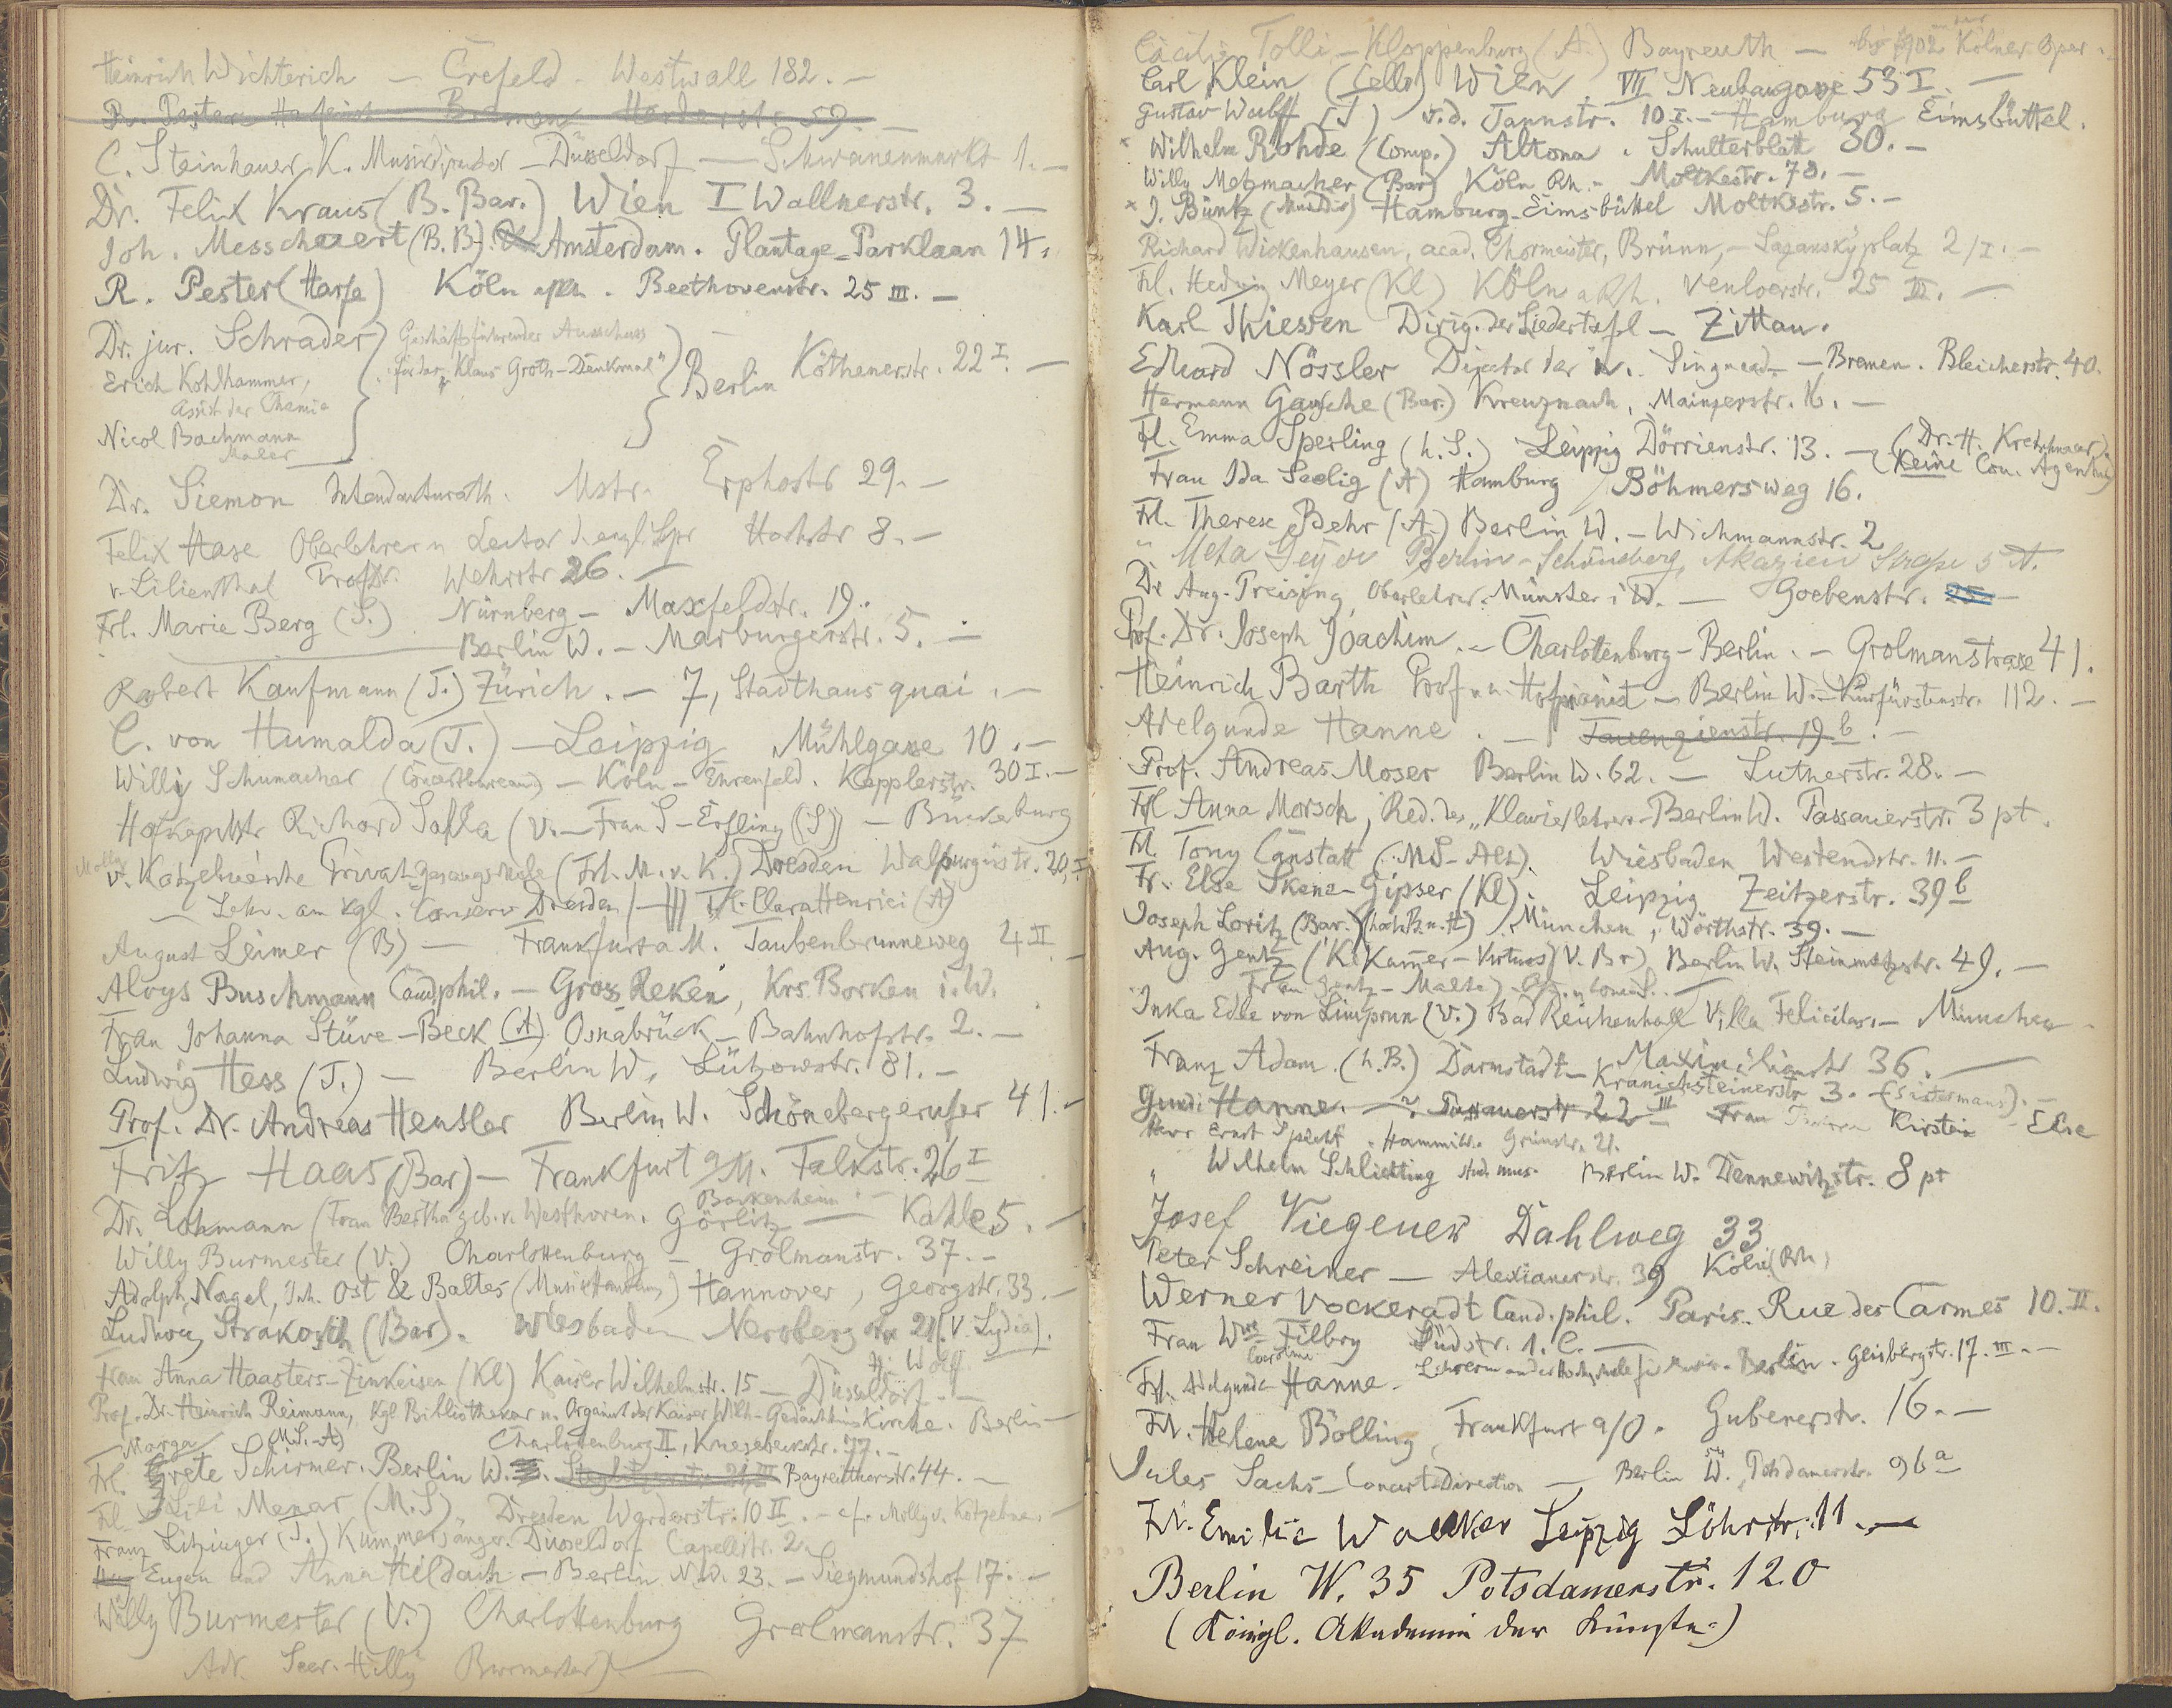 Heinrich Wichterich — Crefeld - Westwall 182. —
R. Pester Harfenist Bremen Herderstr. 59. —
C. Steinhauer, K. Musikdirector — Düsseldorf — Schwanenmarkt 1. —
Dr. Felix Kraus (B. Bar.) Wien I Wallnerstr. 3. —
Joh. Messchaert (B. B). Amsterdam. Plantage-Parklaan 14.
R. Pester (Harfe) Köln a/Rh. Beethovenstr. 25 III. —
Dr. jur. Schrader
Erich Kohlhammer,
Assist der Chemie
Nicol Bachmann
Maler
Geschäftsführender Ausschuss
für das „Klaus Groth-Denkmal"
Berlin Köthenerstr. 22 I. —
Dr. Siemon Intendanturath. Mstr. Erphostr 29. —
Felix Hase Oberlehrer u Lector d. engl. Spr Horstr 8. —
v. Lilienthal Profstr. Wehrstr 26. —
Frl. Marie Berg (S.) Nürnberg — Maxfeldstr. 19.
Berlin W. — Marburgerstr. 5. —
Robert Kaufmann (T.) Zürich. — 7, Stadthausquai. —
C. von Humalda (T.) — Leipzig Mühlgasse 10. —
Willy Schumacher (Concertbureau) — Köln - Ehrenfeld. Kepplerstr. 30 I. —
Hofkapellmstr Richard Sahla (V. — Frau S-Erfling (S)) — Bückeburg
Molly
v. Kotzebue'sche Privat-Gesangschule (Frl. M. v. K.) Dresden Walpurgisstr. 20, I
— Lehr. am Kgl. Conserv Dresden / — Frl. Clara Henrici (A)
August Leimer (B) — Frankfurt a M. Taubenbrunneweg 4 II —
Aloys Buschmann Cand phil. — Gross Reken, Krs. Borken i. W.
Frau Johanna Stüve-Beck (A) Osnabrück — Bahnhofstr. 2. —
Ludwig Hess (T.) — Berlin W, Lützowstr. 81. —
Prof. Dr. Andreas Heusler Berlin W. Schönebergerufer 41. —
Fritz Haas (Bar) — Frankfurt a/M. Falkstr. 26 I
Bockenheim. —
Dr. Lohmann (Frau Bertha geb. v. Westhoven. Görlitz — Kahle 5. —
Willy Burmester (V.) Charlottenburg — Grolmanstr. 37. —
Adolph Nagel, Inh. Ost & Baltes (Musikhandlung) Hannover, Georgstr. 33. —
Ludwig Strakosch (Bar). Wiesbaden Nerobergstr 21 (V. Lydia).
Frau Anna Haasters-Zinkeisen (Kl) Kaiser Wilhelmstr. 15 — Düsseldorf. —
Prof. Dr. Heinrich Reimann, Kgl Bibliothekar u. Organist der Kaiser Wilh-Gedächtniskirche. Berlin —
Charlottenburg II, Knesebeckstr. 77. —
Marga (M.S.-A)
Frl. Grete Schirmer. Berlin W. Bayreutherstr. 44. —
Frl. Lili Menar (M.S) Dresden Werderstr. 10 II. — cfr. Molly v. Kotzebue. —
Franz Litzinger (T.) Kammersänger. Düsseldorf Capellstr. 2.
Eugen und Anna Hildach — Berlin N.W. 23. — Siegmundshof 17. —
Willy Burmester (V.) Charlottenburg Grolmanstr. 37
Adr. Secr. Hilly Burmester). —
Cäcilie Tolli-Kloppenburg (A.) Bayreuth — bis 1902 Kölner Oper.
Carl Klein (Cello) Wien. VII Neubaugasse 53 I. —
Gustav Wulff (T) v. d. Tannstr. 10 I. — Hamburg Eimsbüttel.
× Wilhelm Rohde (Comp.) Altona. Schulterblatt 30. —
Willy Metzmacher (Bar) Köln Rh. — Moltkestr. 78. —
× J. Büntz (Musikdir) Hamburg-Eimsbüttel Moltkestr. 5. —
Richard Wickenhausen, acad. Chormeister, Brünn, — Lazanskyplatz 2/I. —
Frl. Hedwig Meyer (Kl) Köln a Rh. Venloerstr. 25 III. —
Karl Thiessen Dirig. der Liedertafel — Zittau.
Eduard Nössler Director der n. Singacad. — Bremen. Bleicherstr. 40.
Hermann Gausche (Bar.) Kreuznach, Mainzerstr. 16. —
Frl. Emma Sperling (h. S.) Leipzig Dörrienstr. 13. — (Dr. H. Kretzschmar).
Keine Con. Agentur)
Frau Ida Seelig (A) Hamburg Böhmersweg 16.
Frl. Therese Behr (A) Berlin W. — Wichmannstr. 2
" Meta Geyer Berlin-Schöneberg, Akazien Strasse 5 II.
Dr Aug. Preising, Oberlehrer. Münster i W. — Goebenstr.
Prof. Dr. Joseph Joachim. — Charlottenburg-Berlin. — Grolmanstrasse 41.
Heinrich Barth Prof u. Hofpianist — Berlin W. — Kurfürstenstr. 112. —
Adelgunde Hanne. — Tauenzienstr. 19 b. —
Prof. Andreas Moser Berlin W. 62. — Lutherstr. 28. —
Frl Anna Morsch, Red. des „Klavierlehrer - Berlin W. Passauerstr. 3 pt.
Frl. Tony Canstatt (MS-Alt). Wiesbaden Westendstr. 11. —
Fr. Else Skene-Gipser (Kl). Leipzig Zeitzerstr. 39 b
Joseph Loritz (Bar.) (hoh B. u. H) München, Wörthstr. 39. —
Aug. Gentz (K. Kammer-Virtuos) V. Br) Berlin W. Steinmetzstr. 49. —
Frau Gentz-Malte)
Inka Edle von Limprun (V.) Bad Reichenhall Villa Felicitas. — München
Maximilianstr 36. —
Franz Adam. (h. B.) Darmstadt — Kranichsteinerstr 3. — (Sistermans). —
Gundi Hanne. — Passauerstr 22 III Frau Kirstein - Else
Herr Ernst Specht. Hamm i W. Grünstr. 21.
" Wilhelm Schlichting stud. mus. Berlin W. Dennewitzstr. 8 pt
Josef Viegener Dahlweg 33
Peter Schreiner — Alexianerstr. 39 Köln (Rh)
Werner Vockeradt Cand. phil. Paris. Rue des Carmes 10. II.
Frau Wwe Filbry Südstr. 1. C. —
Caroline
Frl. Adelgunde Hanne. Lehrerin an der Hochschule für Musik. Berlin. Geisbergstr. 17. III. —
Frl. Helene Bölling, Frankfurt a/O. Gubenerstr. 16. —
Jules Sachs — Concert-Direction — Berlin W. Potsdamerstr. 96 a
Frl. Emilie Walker Leipzig Löhrstr. 11. —
Berlin W. 35 Potsdamerstr. 120
(Königl. Akademie der Künste.)